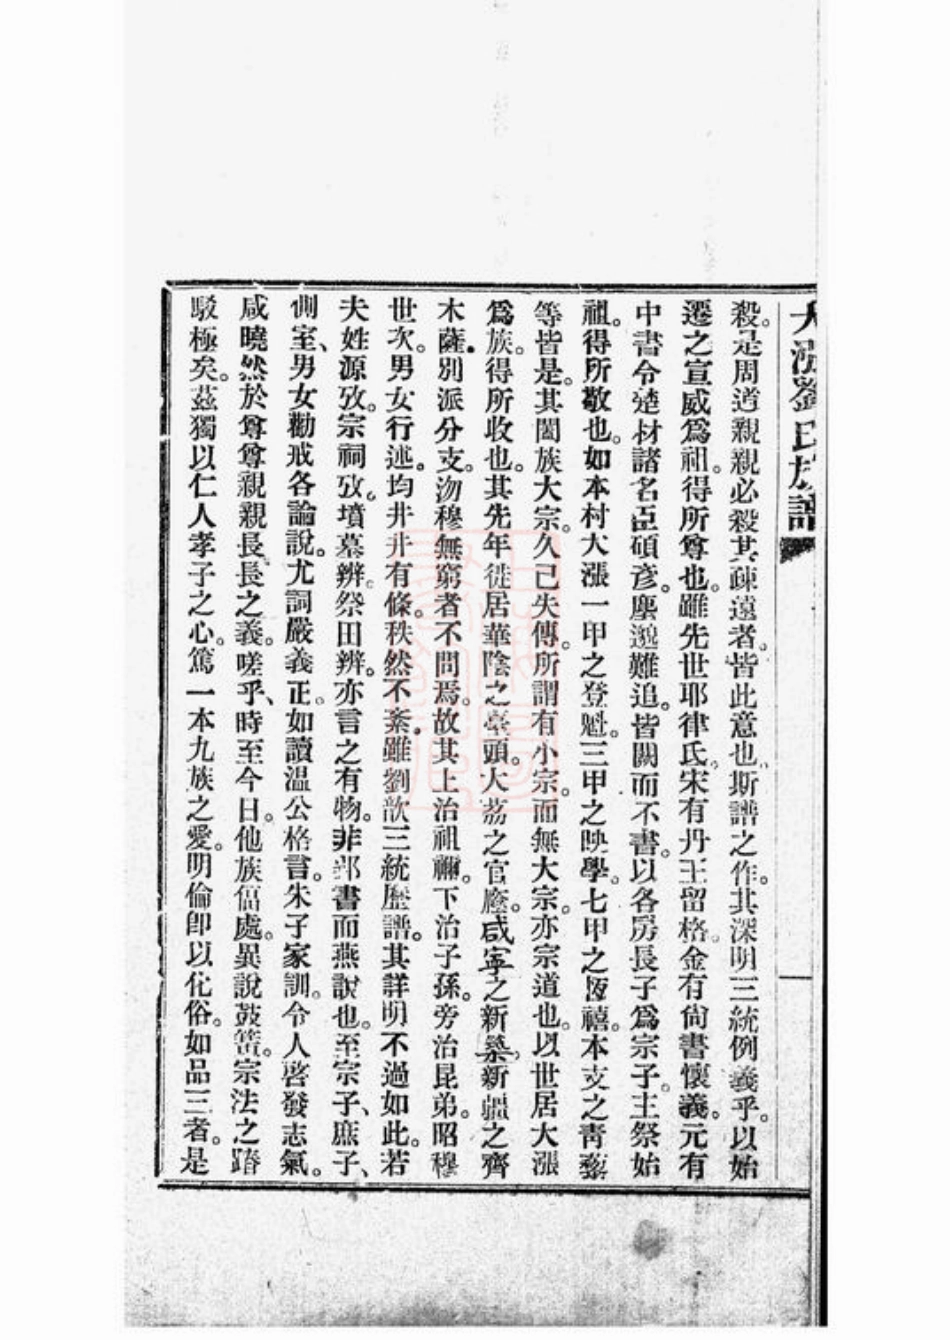 大漲劉氏族譜
殺。是周道親親必殺其疎遠者。皆此意也。斯譜之作。其深明三統例義乎。以始
遷之宣威爲祖。得所尊也。雖先世耶律氏。宋有丹王留格。金有尙書懷義。元有
中書令楚材諸名臣碩彥。塵邈難追。皆闕而不書。以各房長子爲宗子。主祭始
祖。得所敬也。如本村大漲一甲之登魁。三甲之映學。七甲之恆禧。本支之靑藜
等皆是。其闔族大宗。久已失傳。所謂有小宗。而無大宗。亦宗道也。以世居大漲
爲族。得所收也。其先年徙居華陰之臺頭。大荔之官廳。咸寧之新築。新疆之齊
木薩。別派分支。沕穆無窮者不問焉。故其上治祖禰。下治子孫。旁治昆弟。昭穆
世次。男女行述。均井井有條。秩然不紊。雖劉歆三統歷譜。其詳明不過如此。若
夫姓源攷。宗祠攷。墳墓辨。祭田辨。亦言之有物。非郢書而燕說也。至宗子、庶子、
側室、男女勸戒各論說。尤詞嚴義正。如讀溫公格言。朱子家訓。令人啓發志氣。
咸曉然於尊尊親親長長之義。嗟乎、時至今日。他族偪處。異說鼓簧。宗法之踳
駁極矣。茲獨以仁人孝子之心。篤一本九族之愛。明倫卽以化俗。如品三者。是